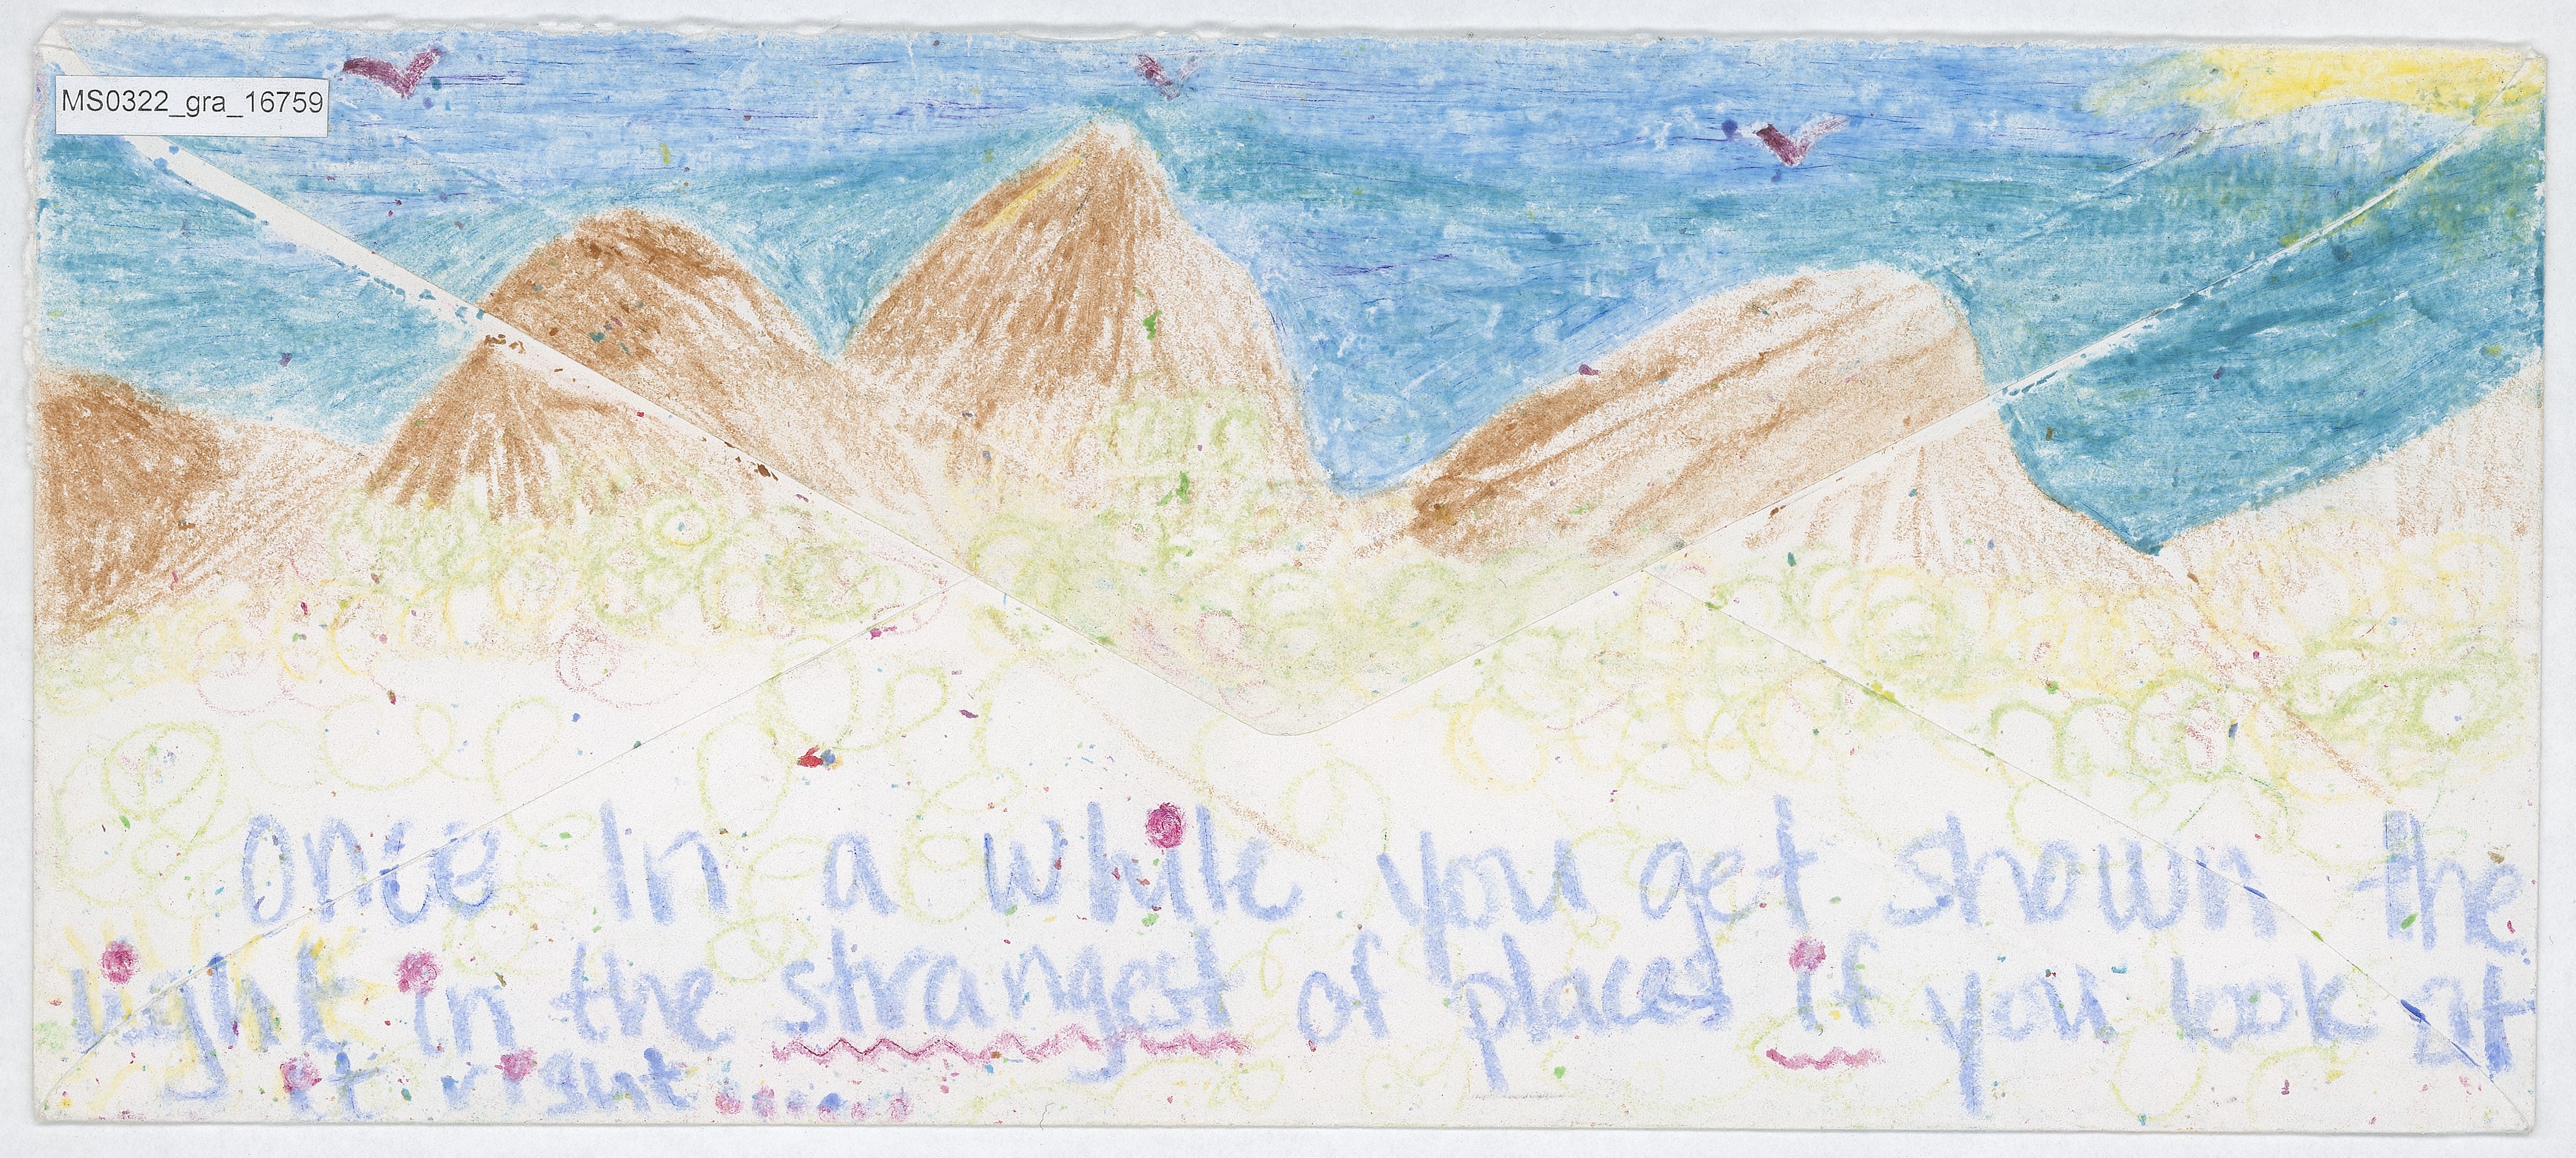 MS0322_gra_16759
Once In a while you get shown the
light in the strangest of places if you look at
it right......